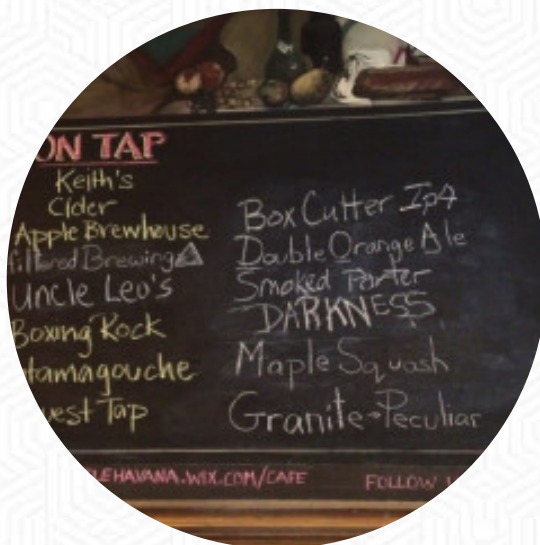 ON TAP
Keith's
Cider
Apple Brewhouse
Brewing
Uncle Leo's
Boxing Rock
tamagouche
uest Tap
Box Cutter IPA
Double Orange Ale
Smoked Porter
DARKNESS
Maple Squash
Granite-Peculiar
LEHAVANA.WIX.COM/CAFE
FOLLOW